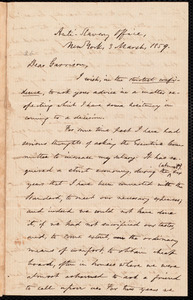 Anti-Slavery Office,
New York, 3 March, 1859.
Dear Garrison,
I wish, in the strictest confi-
dence, to ask your advice in a matter re-
specting which I have some hesitancy in
coming to a decision.
For some time past I have had
serious thoughts of asking the Executive Com-
mittee to increase my salary. It has re-
quired a strict economy, during the
years that I have been connected with the
Standard, to meet our necessary expenses,
and we could not have done
it if we had not sacrificed our tastes,
and, to some extent, the ordinary
means of comfort to a
board, often in houses where we have
almost ashamed to ask a friend
to call upon us. For two years as